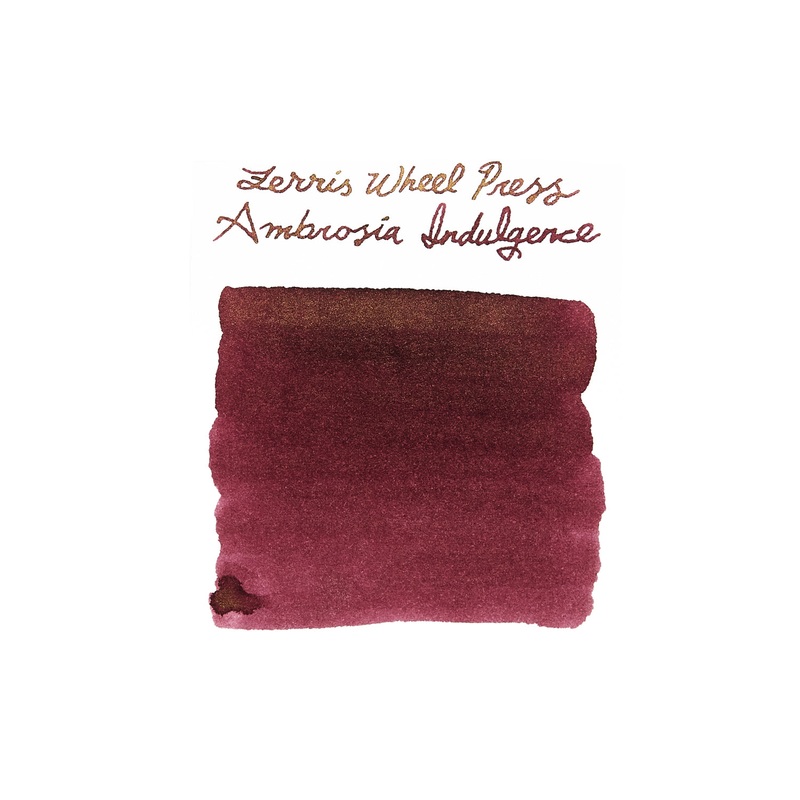 Ferris Wheel Press
Ambrosia Indulgence